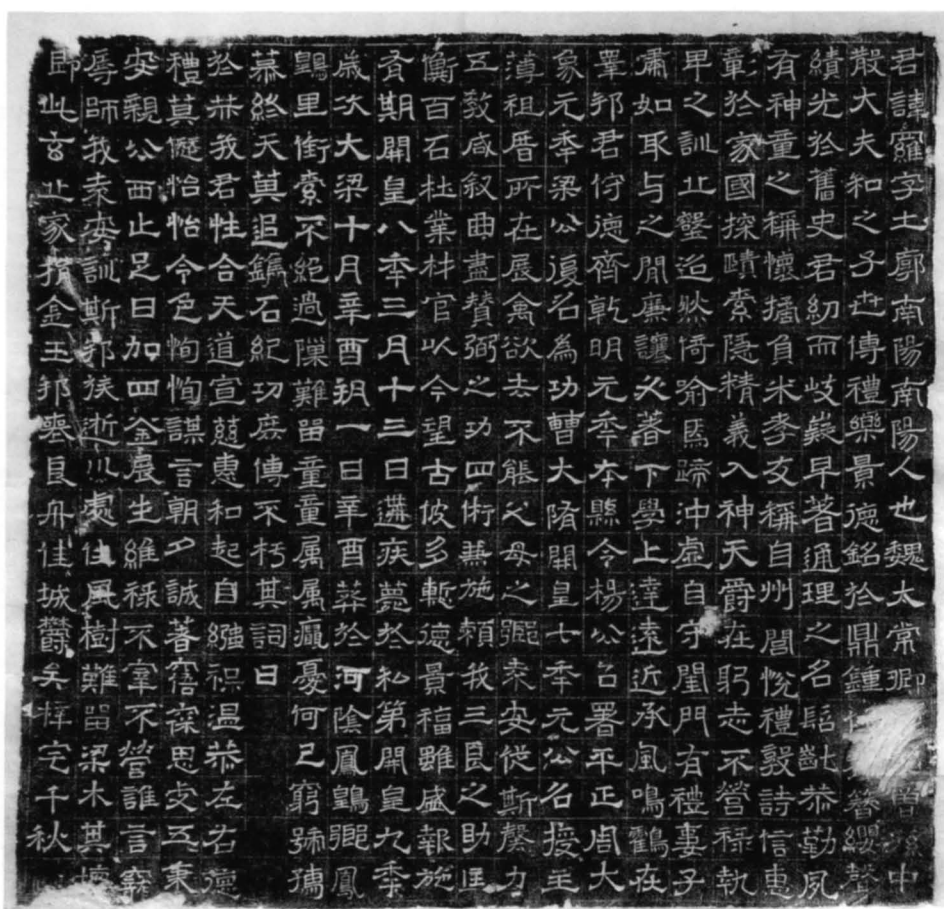 君諱羅字士廓南陽南陽人也魏太常卿中
散大夫和之子世傳禮樂景德銘於鼎鍾簪纓聲
績光於舊史君幼而岐嶷早著通理之名髫齔恭勤夙
有神童之稱懷橘負米孝友稱自州閭悅禮敦詩信惠
彰於家國探賾索隱精義入神天爵在躬志不營祿執
卑之訓止壑迨然倚喻馬蹄沖虛自守閨門有禮妻子
肅如取与之閒廉讓久著下學上達遠近承風鳴鶴在
睪邦君佇德齊乾明元年本縣令楊公召署平正周大
象元年梁公復名為功曹大隋開皇七年元公名授主
薄祖曆所在展禽欲去不能父母之鄉桒安從斯磬力
五教咸叙曲盡贊弼之功四術兼施賴我三良之助匡
衡百石杜業材官以今望古彼多慙德景福雖盛報施
有期開皇八年三月十三日遘疾薨於私第開皇九年
歲次大梁十月辛酉朔一日辛酉葬於河陰鳳鶚鄉鳳
鶚里銜索不絕過隟難留童童属属癘憂何已窮號孺
慕終天莫追鐫石紀功庶傳不朽其詞曰
於恭我君性合天道宣慈惠和起自繦褓溫恭左右德
禮莫愆怡怡令色恂恂謀言朝夕誠著寤寐思文五秉
安親公西止足日加四釜展生維祿不宰不營誰言窮
辱師我桒安訓斯邦族逝川處往風樹難留梁木其壞
即此玄止家摧金玉邦喪良舟佳城欝矣梓宅千秋